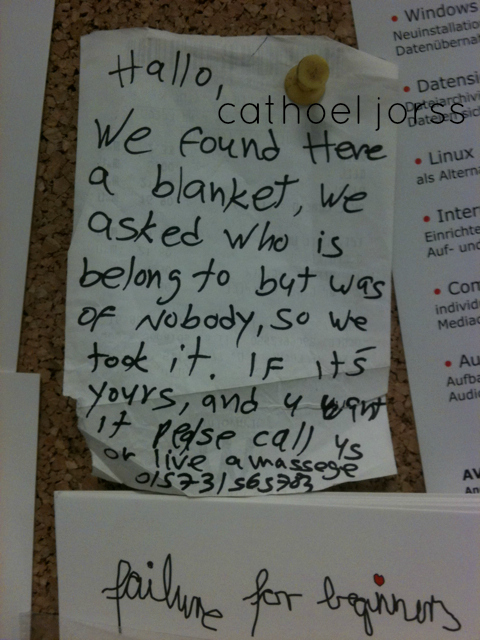 Hallo,
cathoel jorss
We found Here
a blanket, we
asked who is
belong to but was
of Nobody, so we
took it. IF it's
yours, and u want
it please call us
or live a massege
015731565783
failure for beginners
• Windows
Neuinstallatio
Datenübernah
• Datensi
Dateiarchivi
• Linux
als Alterna
• Inter
Einrichte
Auf- und
• Com
individ
Mediac
• Au
Aufba
Audio
AV
An